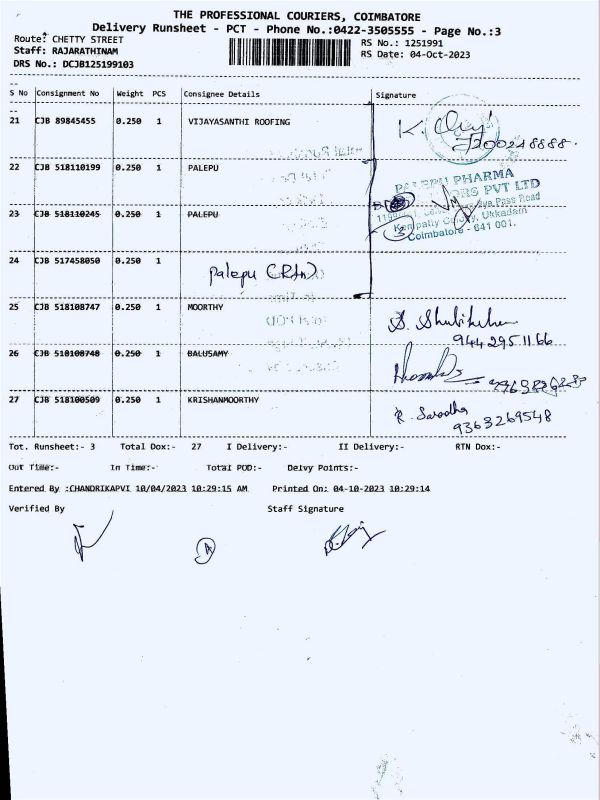 THE PROFESSIONAL COURIERS, COIMBATORE
Delivery Runsheet - PCT - Phone No.:0422-3505555 - Page No.:3
Route: CHETTY STREET
RS No.: 1251991
Staff: RAJARATHINAM
RS Date: 04-Oct-2023
DRS No.: DCJB125199103
S No Consignment No Weight PCS Consignee Details Signature
21 CJB 89845455 0.250 1 VIJAYASANTHI ROOFING
22 CJB 518110199 0.250 1 PALEPU
PALEPU PHARMA
PVT LTD
23 CJB 518110245 0.250 1 PALEPU
Pass Road
Ukkadam
3
Coimbatore - 641 001.
24 CJB 517458050 0.250 1
Palepu
25 CJB 518108747 0.250 1 MOORTHY
9442951166
26 CJB 518108748 0.250 1 BALUSAMY
27 CJB 518100509 0.250 1 KRISHANMOORTHY
R. Sarodha
9363269548
Tot. Runsheet:- 3 Total Dox:- 27 I Delivery:- II Delivery:- RTN Dox:-
Out Time:- In Time:- Total POD:- Delvy Points:-
Entered By :CHANDRIKAPVI 10/04/2023 10:29:15 AM Printed On: 04-10-2023 10:29:14
Verified By Staff Signature
A